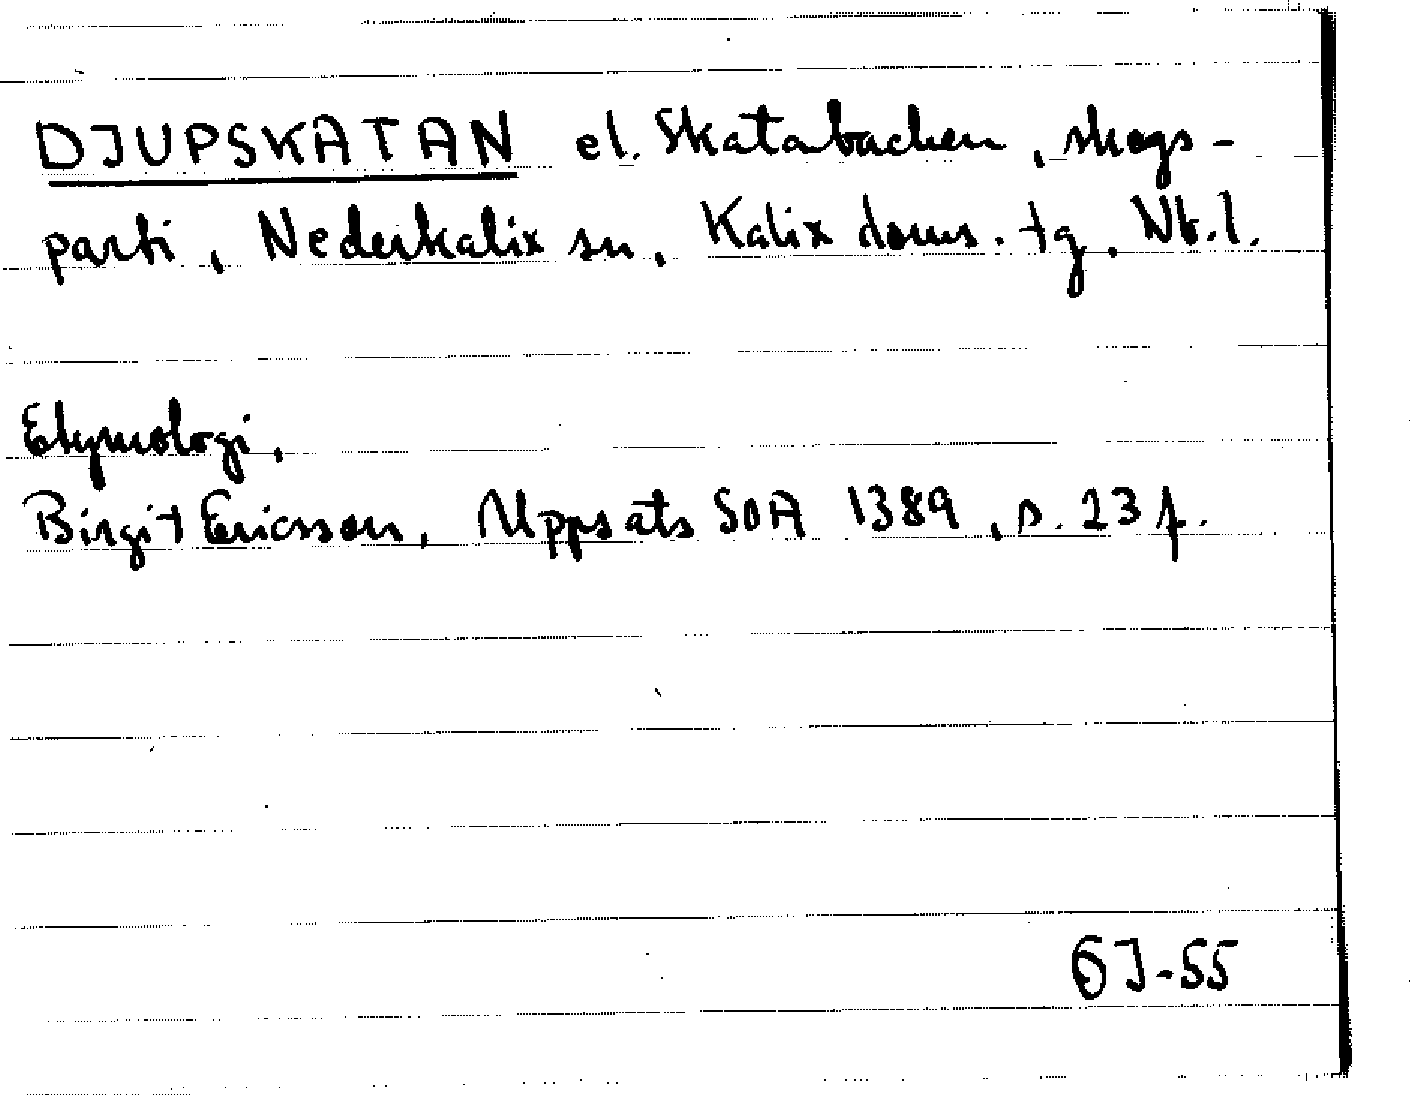 DJUPSKATAN el. Skatabacken, skogs-
parti, Nederkalix sn, Kalix doms. tg, Nb. l.
Etymologi,
Birgit Ericsson, Uppsats SOA 1389, s. 23 f.
GJ-55